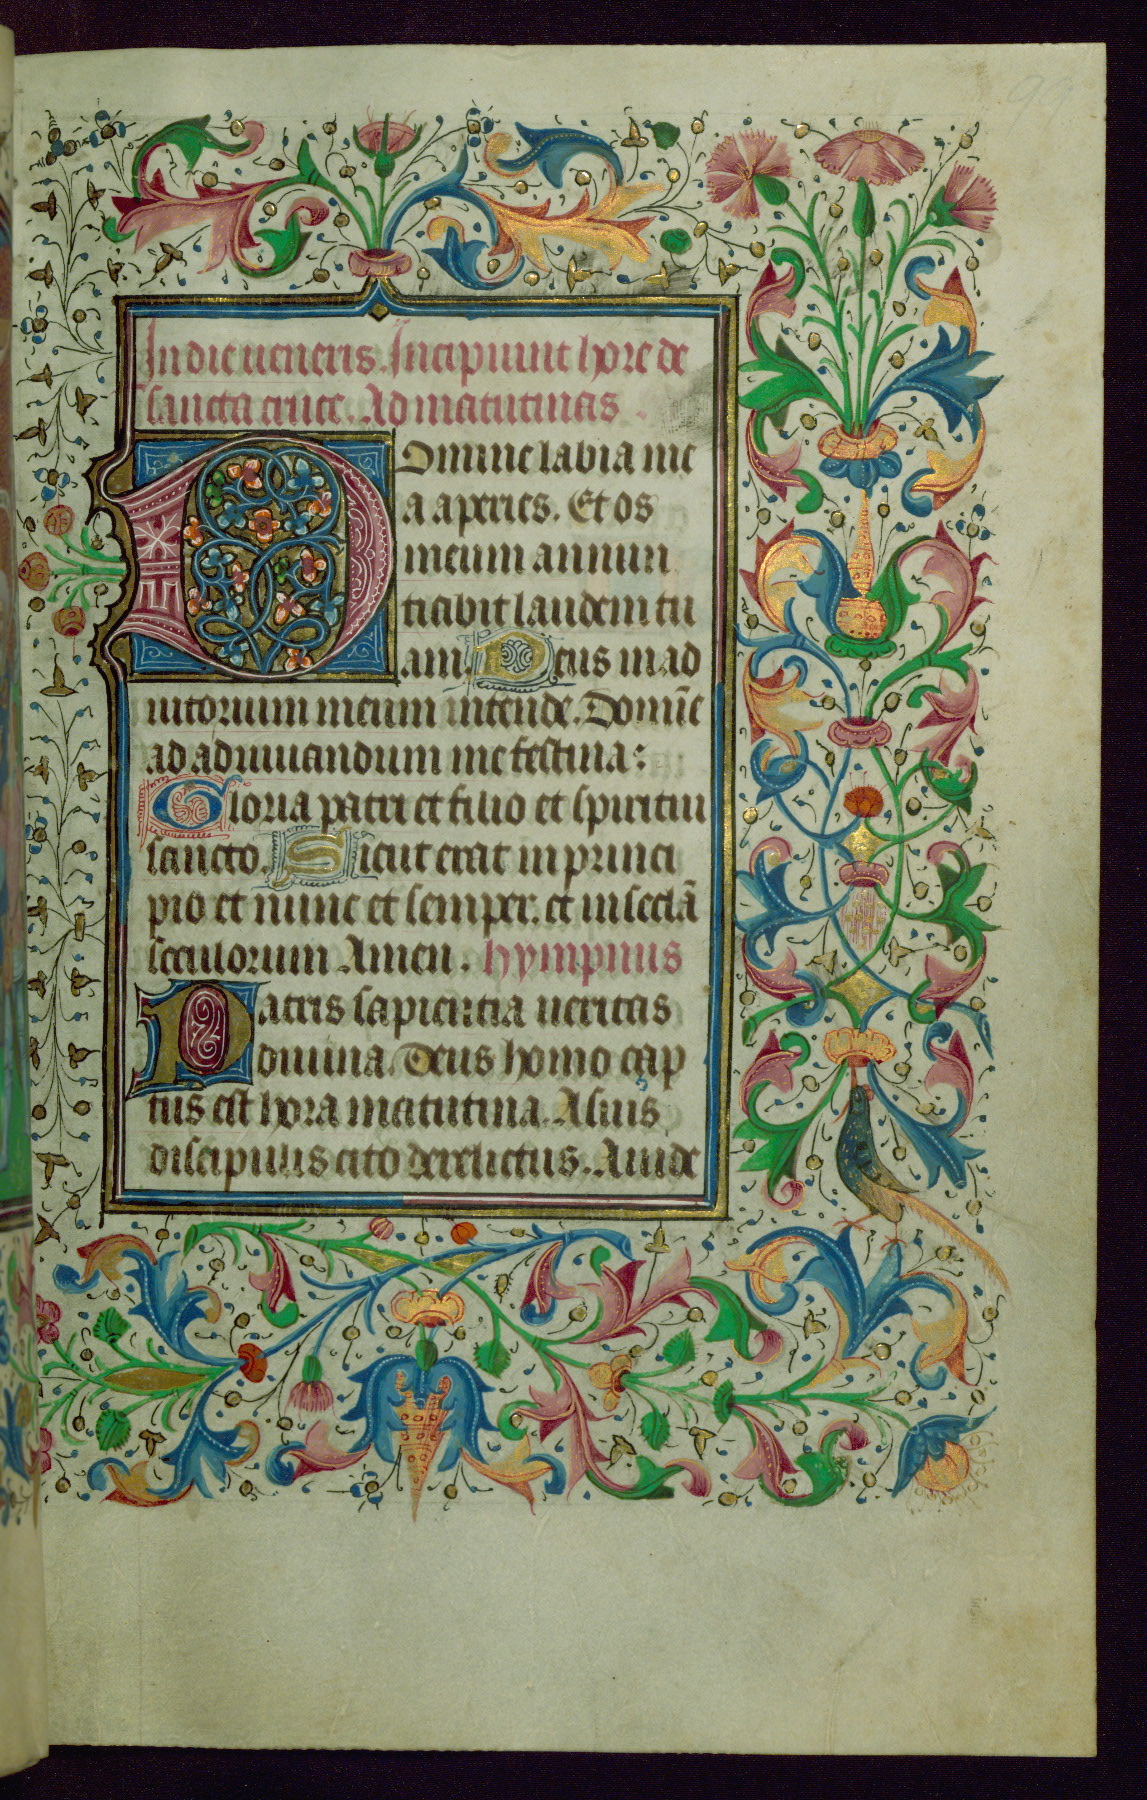 In die ueneris. Incipiunt hore de
sancta cruce. Ad matutinas.
Domine labia me
a aperies. Et os
meum annun
ticabit laudem tu
am Deus in ad
iutorium meum intende. Domīe
ad adiuuandum me festina:
Gloria patri et filio et spiritui
sancto. Sicut erat in princi
pio et nunc et semper. et in seclā
seculorum Amen. hympnus
Patris sapientia ueritas
diuina. Deus homo cap
tus est hora matutina. A suis
discipulis cito derelictus. A iude